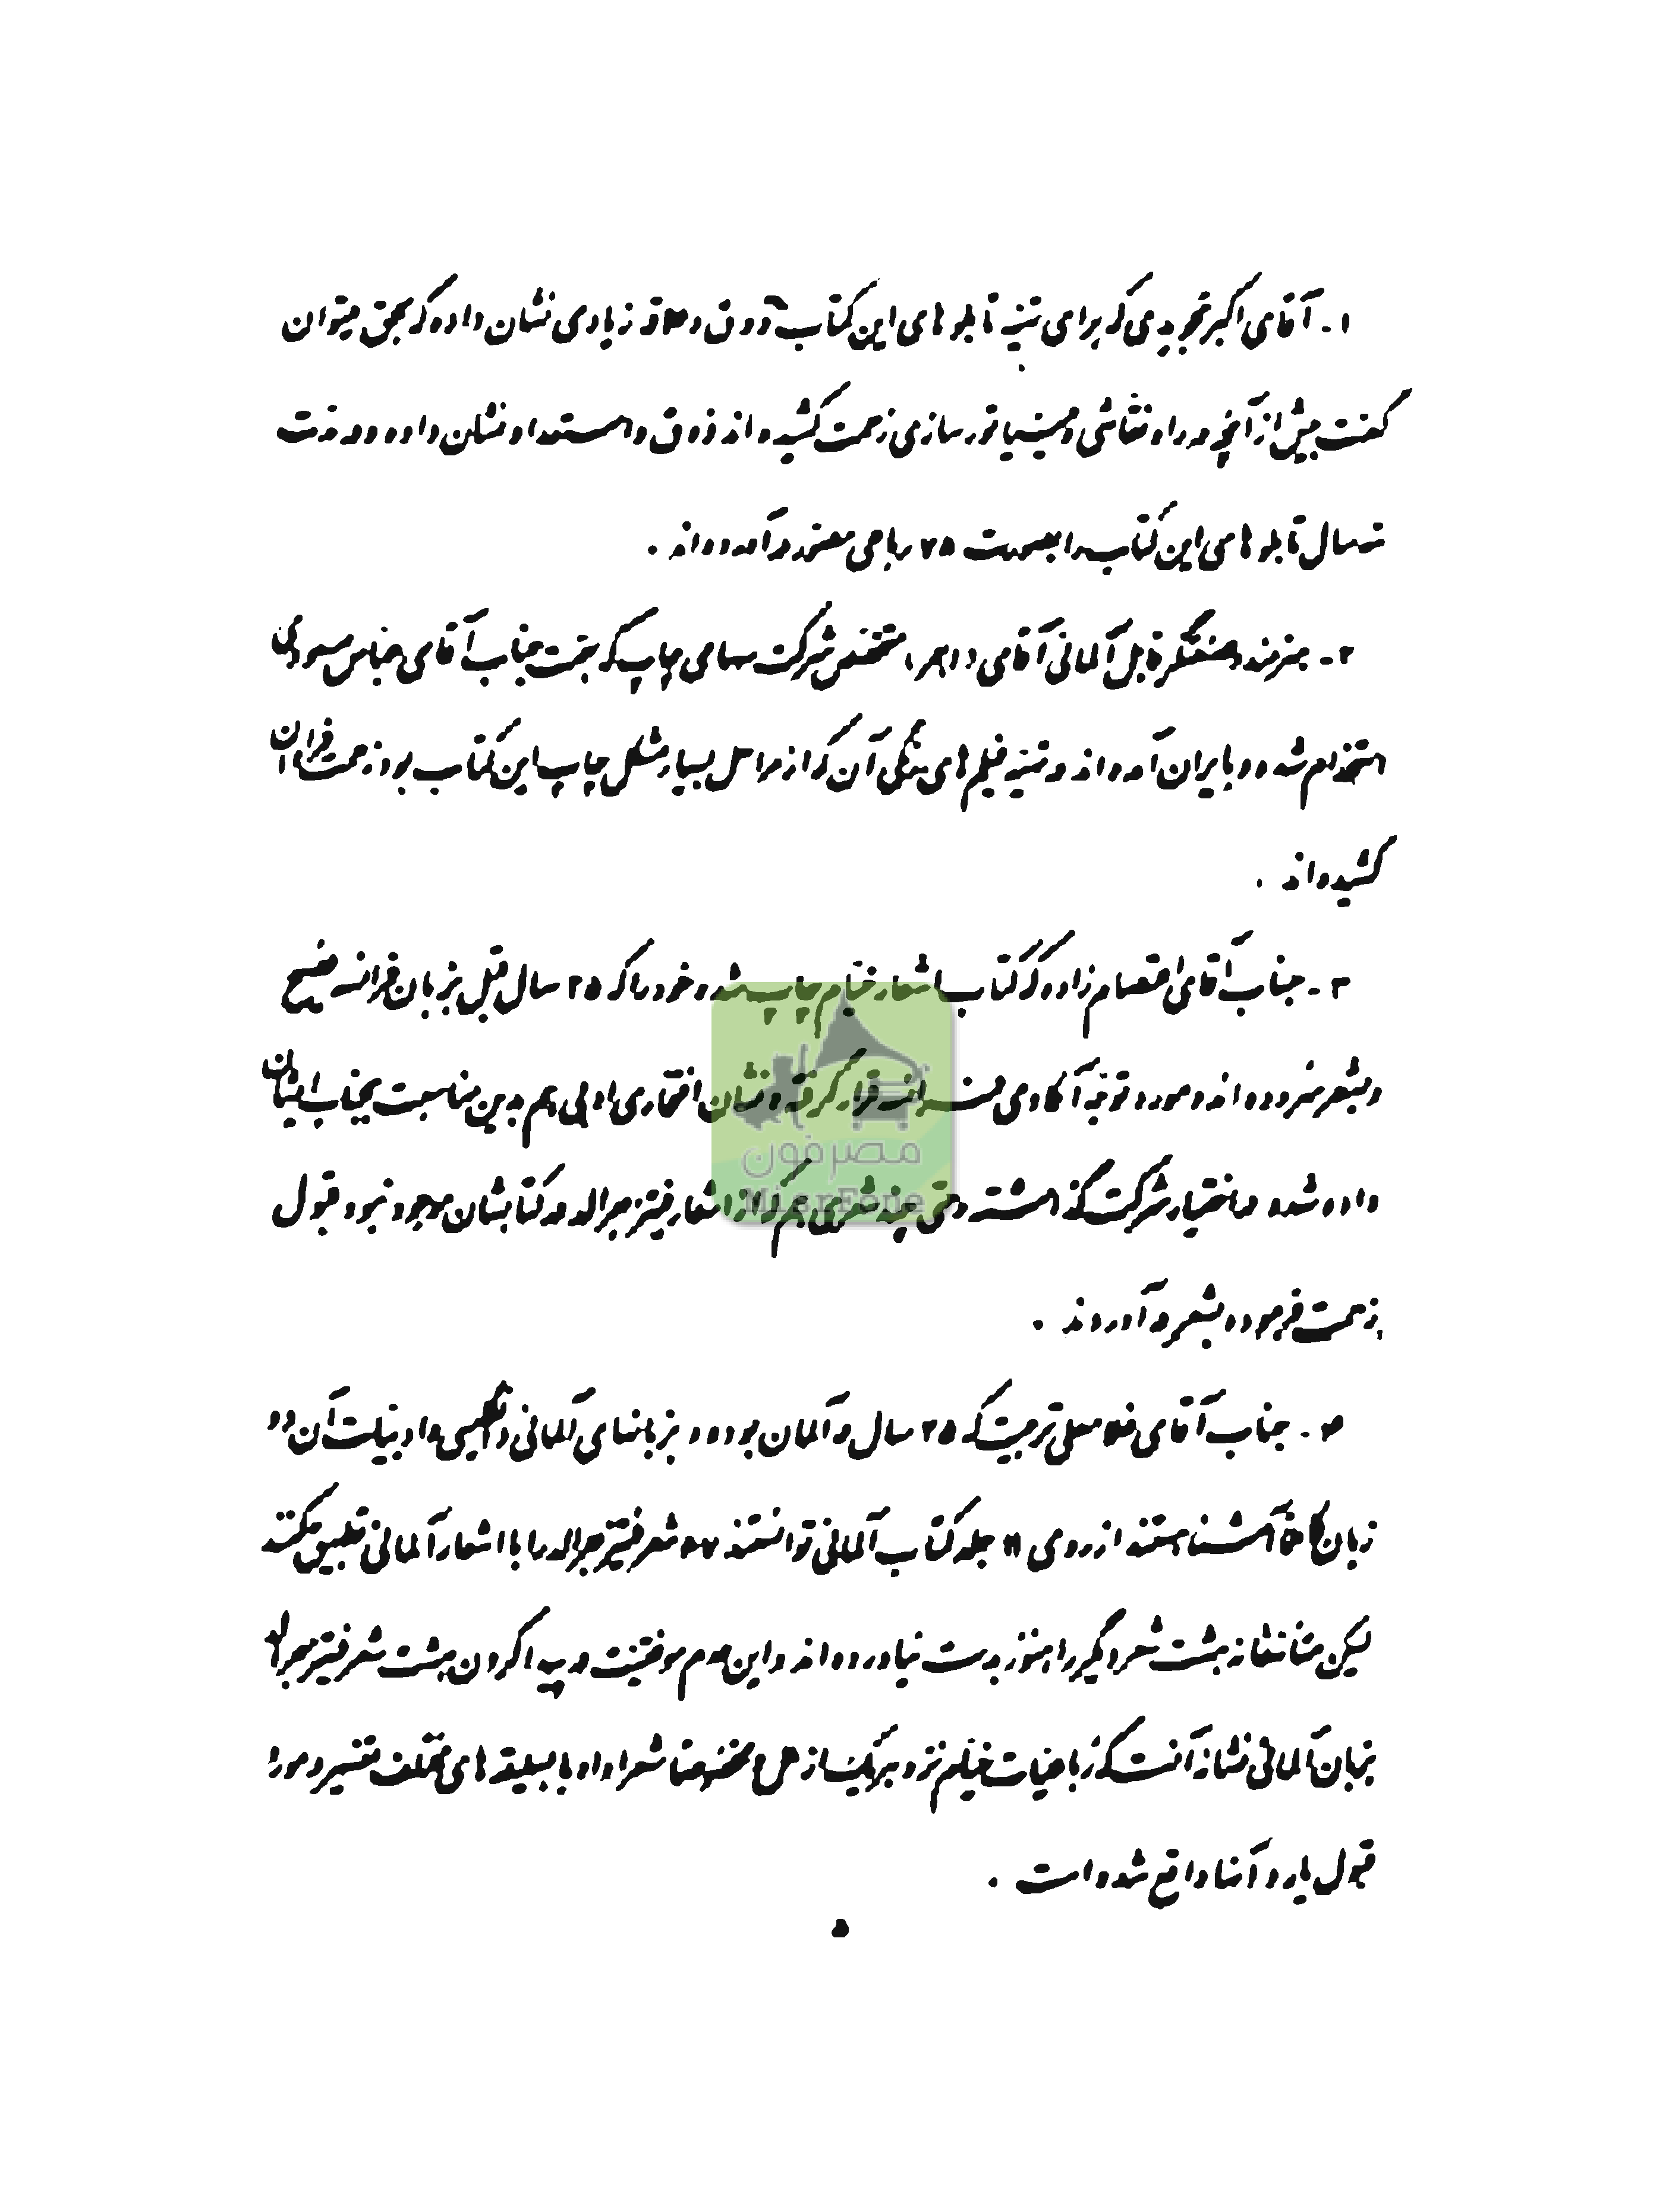 ۱ـ آقای اکبر تجویدی که برای تهیه تابلوهای این کتاب ذوق و علاقه زیادی نشان داده که بحق میتوان
گفت بیش از آنچه در راه نقاشی و مینیاتورسازی زحمت کشیده‌اند ذوق و استعداد نشان داده و در مدت
سه سال تابلوهای این کتاب را بصورت ۷۵ رباعی مصور درآورده‌اند .
۲ـ هنرمند و صنعتگر قابل آلمانی آقای متخصص شرکت سهامی چاپ که بهمت جناب آقای عباس مسعودی
استخدام شده و بایران آمده‌اند و تهیه فیلم‌های رنگی آن که از مراحل بسیار مشکل چاپ این کتاب بود زحمت فراوان
کشیده‌اند .
۳ـ جناب آقای اعتصام‌زاده که کتاب اشعار خیام چاپ شده خود را که ۲۵ سال قبل بزبان فرانسه فصیح
و بشعر سروده‌اند و مورد توجه آکادمی فرانسه قرار گرفته و نشان افتخاری ادبی هم بدین مناسبت بجناب ایشان
داده شده در اختیار شرکت گذاشته و حتی چند شعری هم که از اشعار فیتزجرالد در کتابشان موجود نبود قبول
زحمت فرموده بشعر درآوردند .
۴ـ جناب آقای غلامعلی تربیت که ۲۵ سال در آلمان بوده و بزبانهای آلمانی و انگلیسی و ادبیات آن دو
زبان کاملا آشنا هستند از روی ۱۱ جلد کتاب آلمانی توانستند ۶۷ شعر فیتزجرالد را با اشعار آلمانی تطبیق کنند
لیکن متأسفانه هشت شعر دیگر را هنوز بدست نیاورده‌اند و این عدم موفقیت در پیدا کردن هشت شعر فیتزجرالد
بزبان آلمانی نشانه آنست که رباعیات خیام نزد هر یک از ملل مخصوصا شعرا و ادبا بسلیقه‌های مختلف تفسیر و مورد
قبول یا رد آنها واقع شده است .
۵
مصرفون
MisrFone